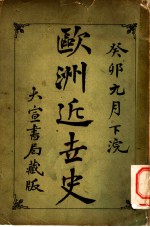 癸卯九月下浣
歐洲近世史
大宣書局藏版